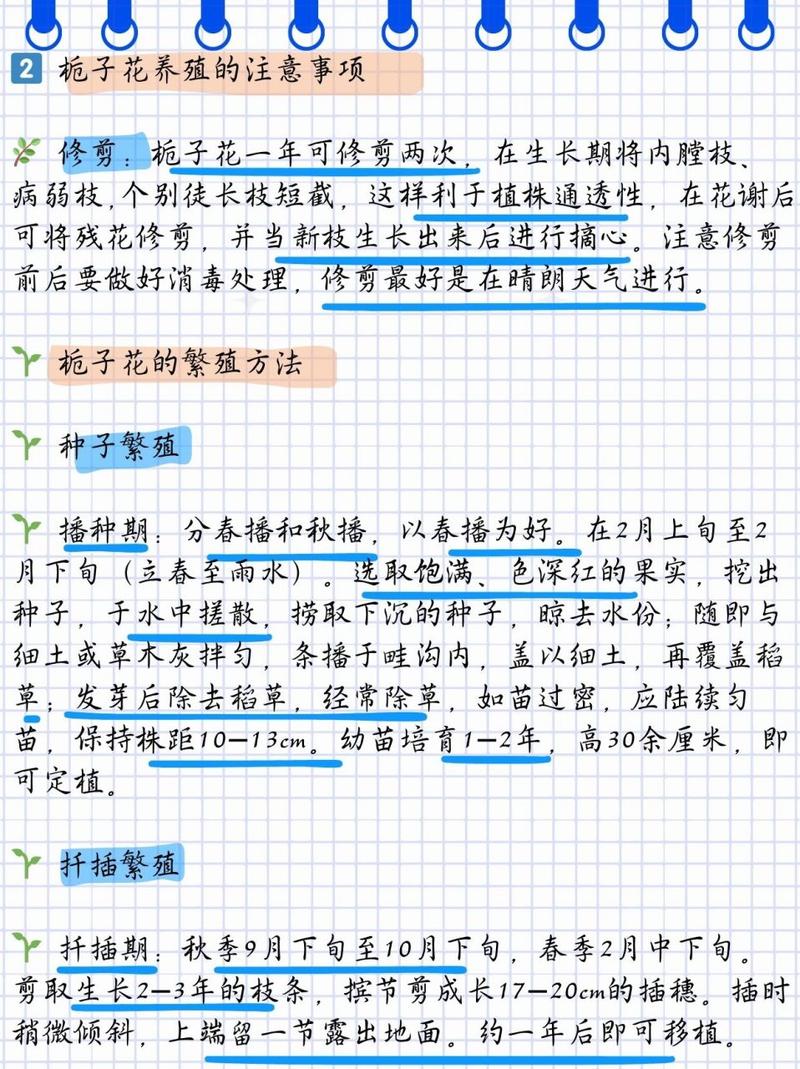 2 栀子花养殖的注意事项
修剪：栀子花一年可修剪两次，在生长期将内膛枝、
病弱枝,个别徒长枝短截，这样利于植株通透性，在花谢后
可将残花修剪，并当新枝生长出来后进行摘心。注意修剪
前后要做好消毒处理，修剪最好是在晴朗天气进行。
栀子花的繁殖方法
种子繁殖
播种期：分春播和秋播，以春播为好。在2月上旬至2
月下旬（立春至雨水）。选取饱满、色深红的果实，挖出
种子，于水中搓散，捞取下沉的种子，晾去水份；随即与
细土或草木灰拌匀，条播于畦沟内，盖以细土，再覆盖稻
草；发芽后除去稻草，经常除草，如苗过密，应陆续匀
苗，保持株距10—13cm。幼苗培育1—2年，高30余厘米，即
可定植。
扦插繁殖
扦插期：秋季9月下旬至10月下旬，春季2月中下旬。
剪取生长2—3年的枝条，摈节剪成长17—20cm的插穗。插时
稍微倾斜，上端留一节露出地面。约一年后即可移植。